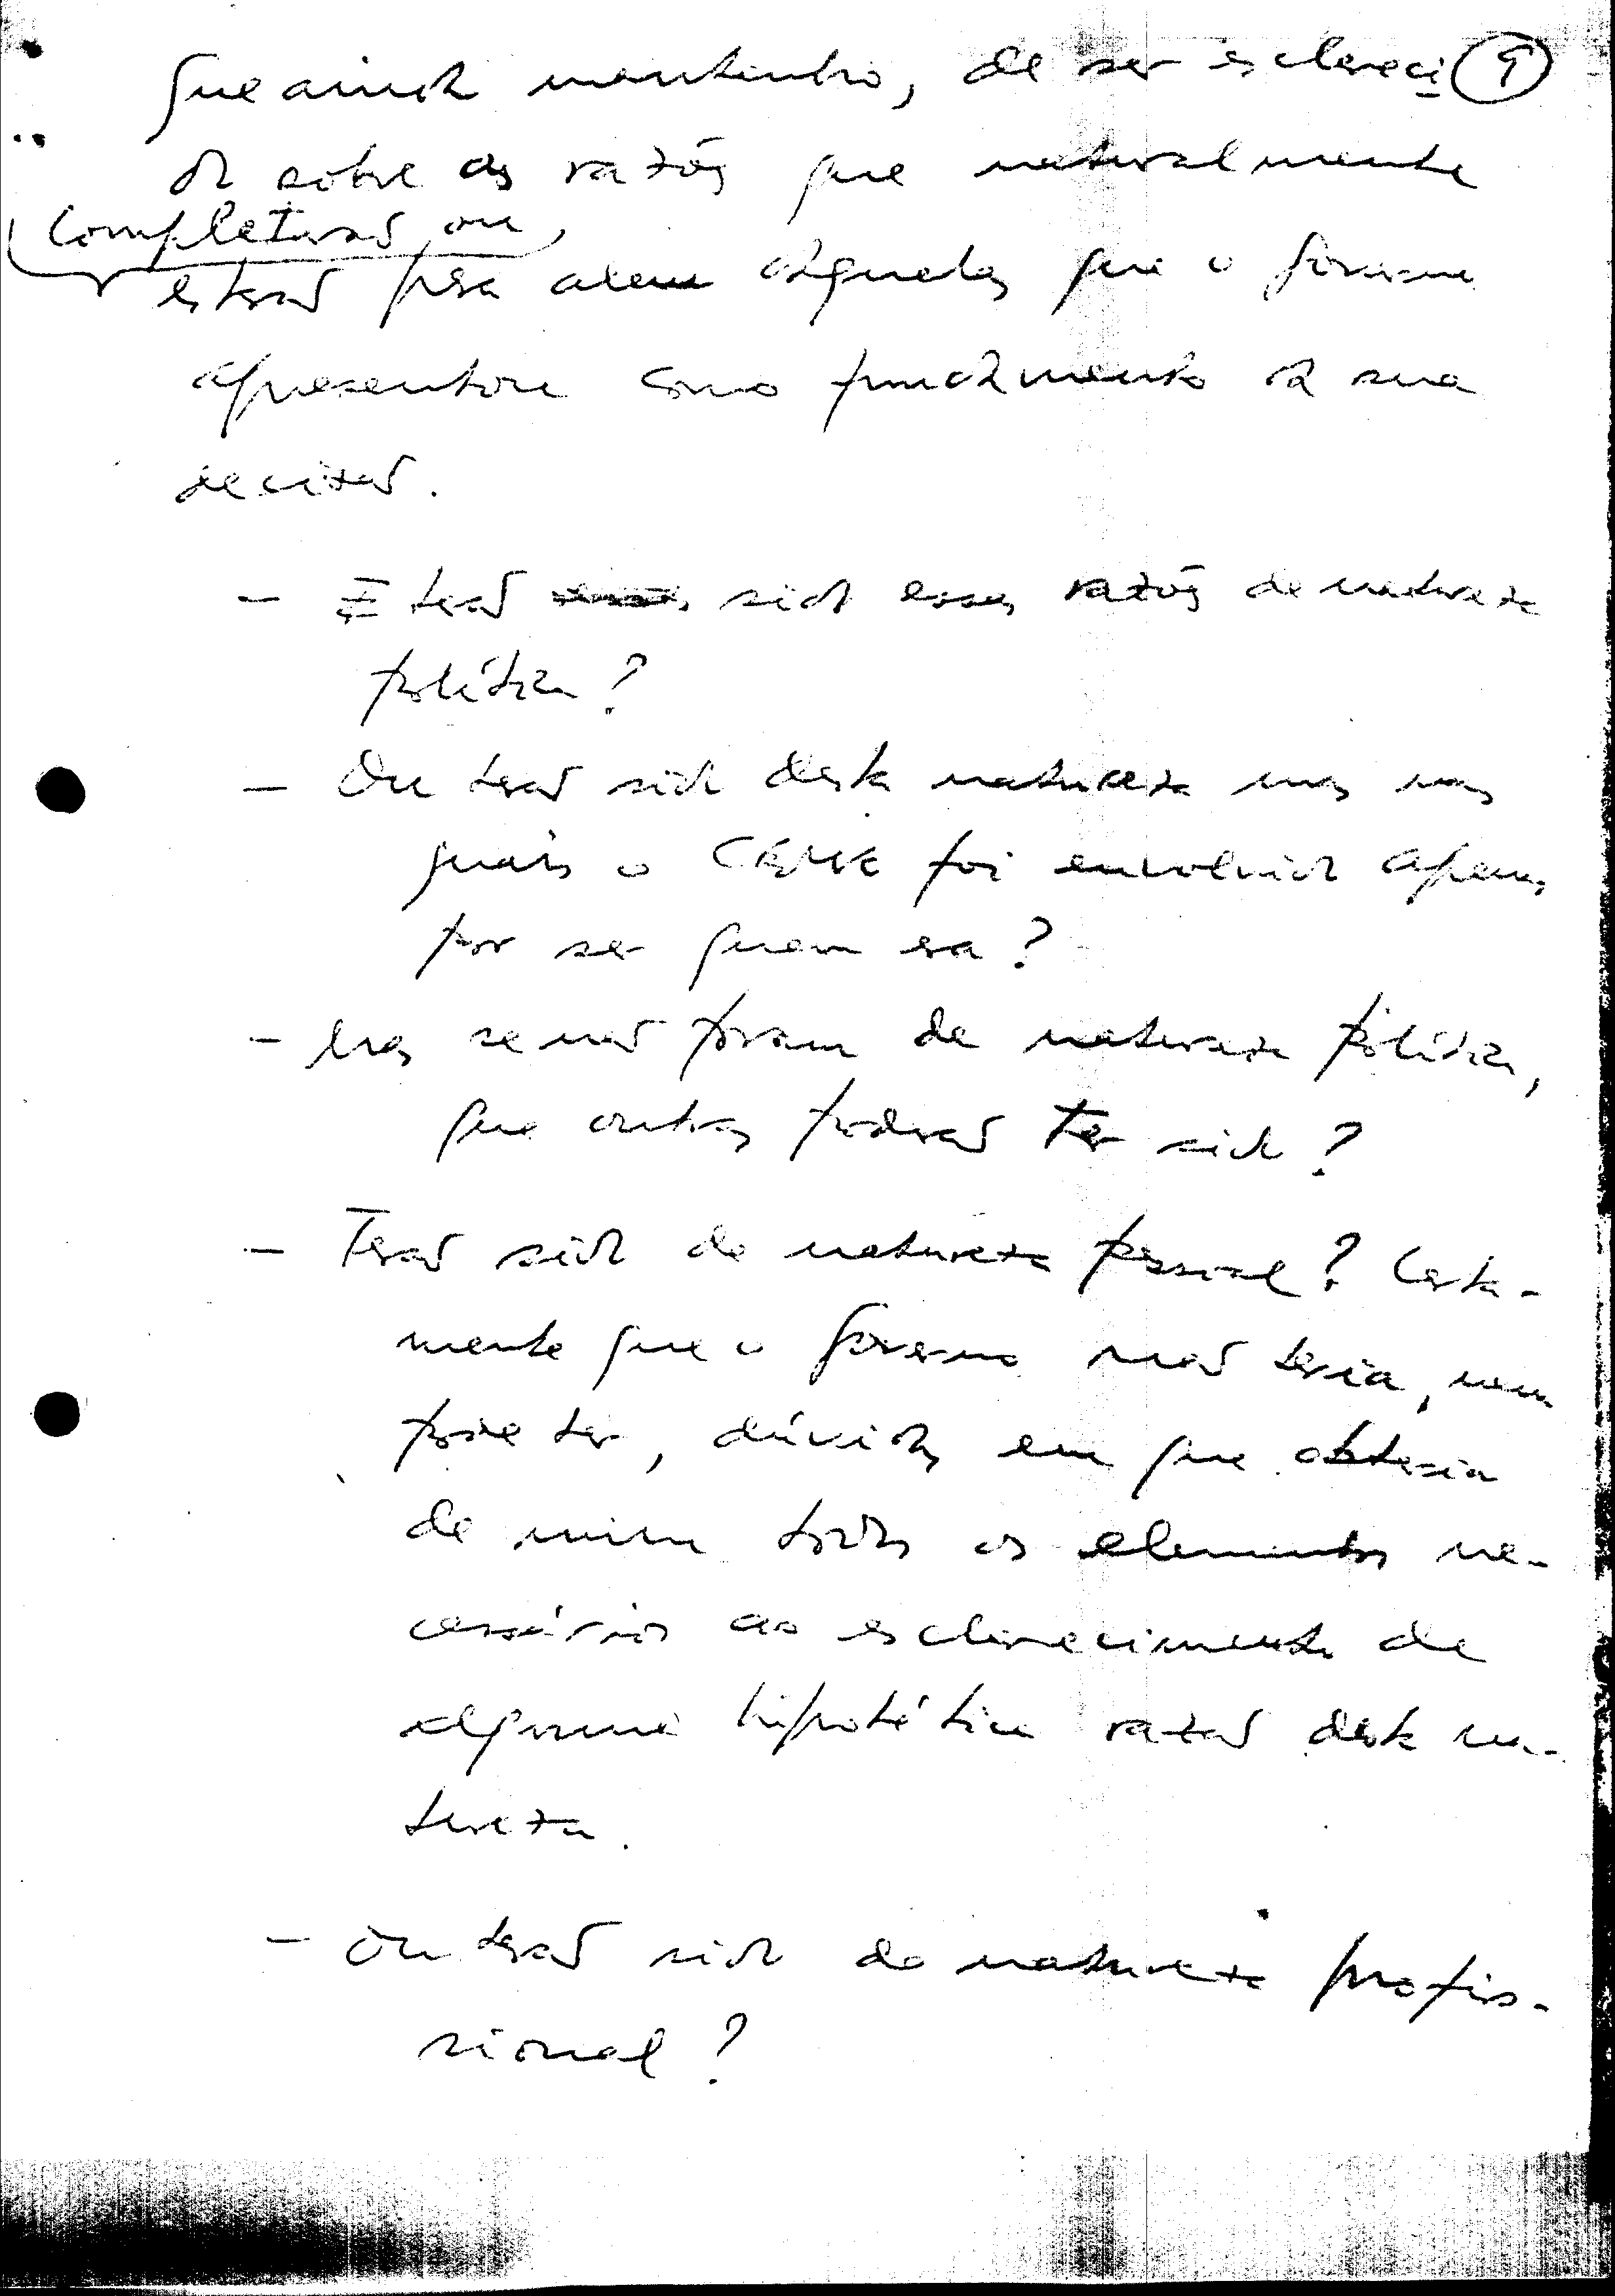 que ainda mantenho, de ser escleреci 9
do sobre as razões que naturalmente
completarão ou
estarão para alem daquelas que o Governo
apresentou como fundamento da sua
decisão.
- E terão sido essas razões de natureza
política?
- Ou terão sido desta natureza mas nas
quais o CEME foi envolvido apenas
por ser quem era?
- Mas se não foram de natureza política,
que outras poderão ter sido?
- Terão sido de natureza pessoal? Certa-
mente que o Governo não teria, nem
pode ter, dúvidas em que obteria
de mim todos os elementos ne-
cessários ao esclarecimento de
alguma hipotética razão desta na-
tureza.
- Ou terão sido de natureza profis-
sional?